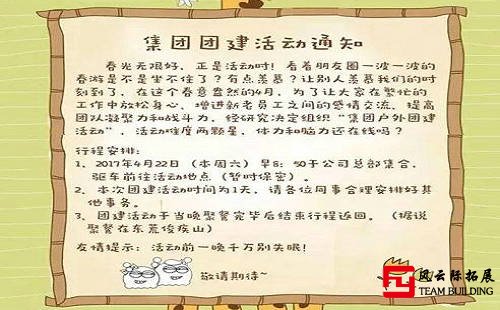 集团团建活动通知
春光无限好，正是活动时！看着朋友圈一波一波的
春游是不是坐不住了？有点羡慕？让别人羡慕我们的时
刻到了，在这个春意盎然的4月，为了让大家在繁忙的
工作中放松身心，增进新老员工之间的感情交流，提高
团队凝聚力和战斗力，经研究决定组织“集团户外团建
活动”，活动难度两颗星，体力和脑力还在线吗？
行程安排：
1、2017年4月22日（本周六）早8：50于公司总部集合，
驱车前往活动地点（暂时保密）。
2、本次团建活动时间为1天，请各位同事合理安排好其
他事务。
3、团建活动于当晚聚餐完毕后结束行程返回。（据说
聚餐在东荒俊疾山）
友情提示：活动前一晚千万别失眠！
敬请期待~
风云际拓展
TEAM BUILDING